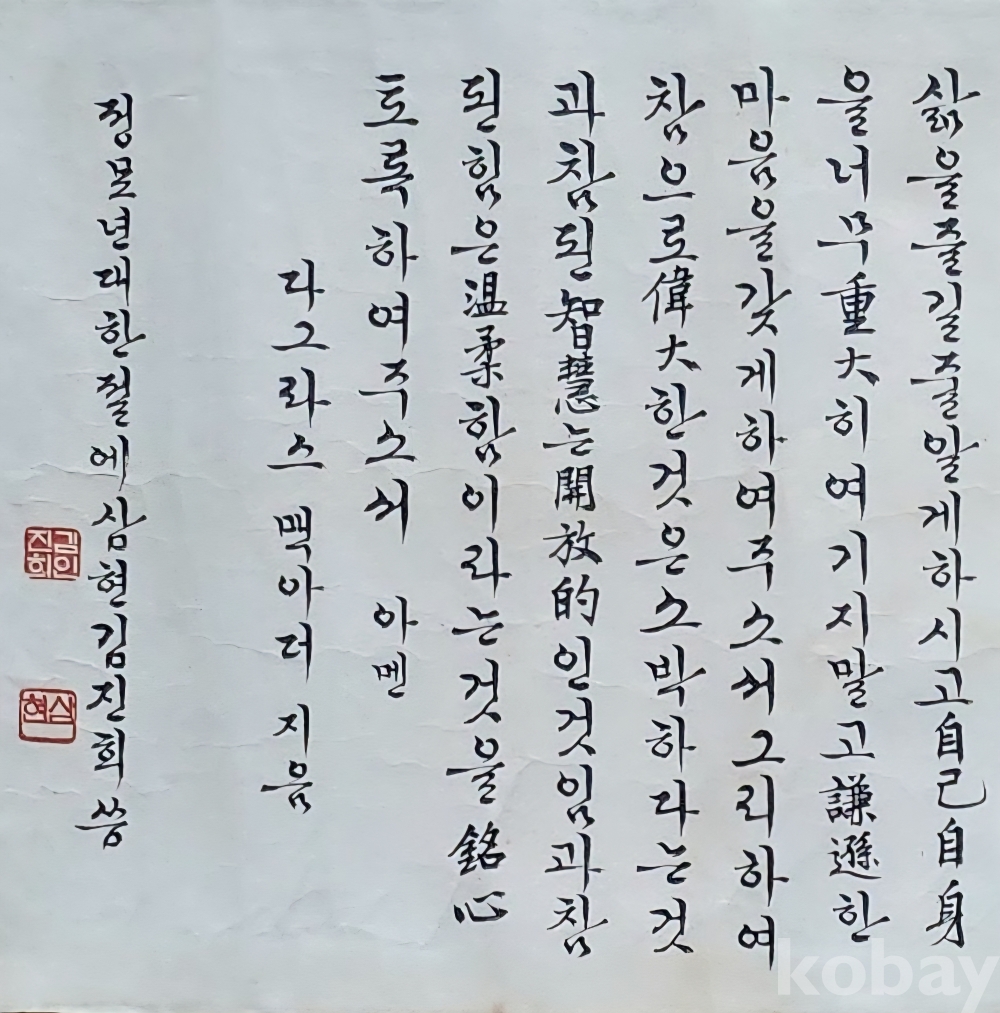 삶을즐길줄알게하시고自己自身
을너무重大히여기지말고謙遜한
마음을갖게하여주소서그리하여
참으로偉大한것은소박하다는것
과참된智慧는開放的인것임과참
된힘은温柔함이라는것을銘心
토록하여주소서 아멘
다그라스 맥아더 지음
정묘년대한절에심현김진희쓰
김진희인
심현
kobay